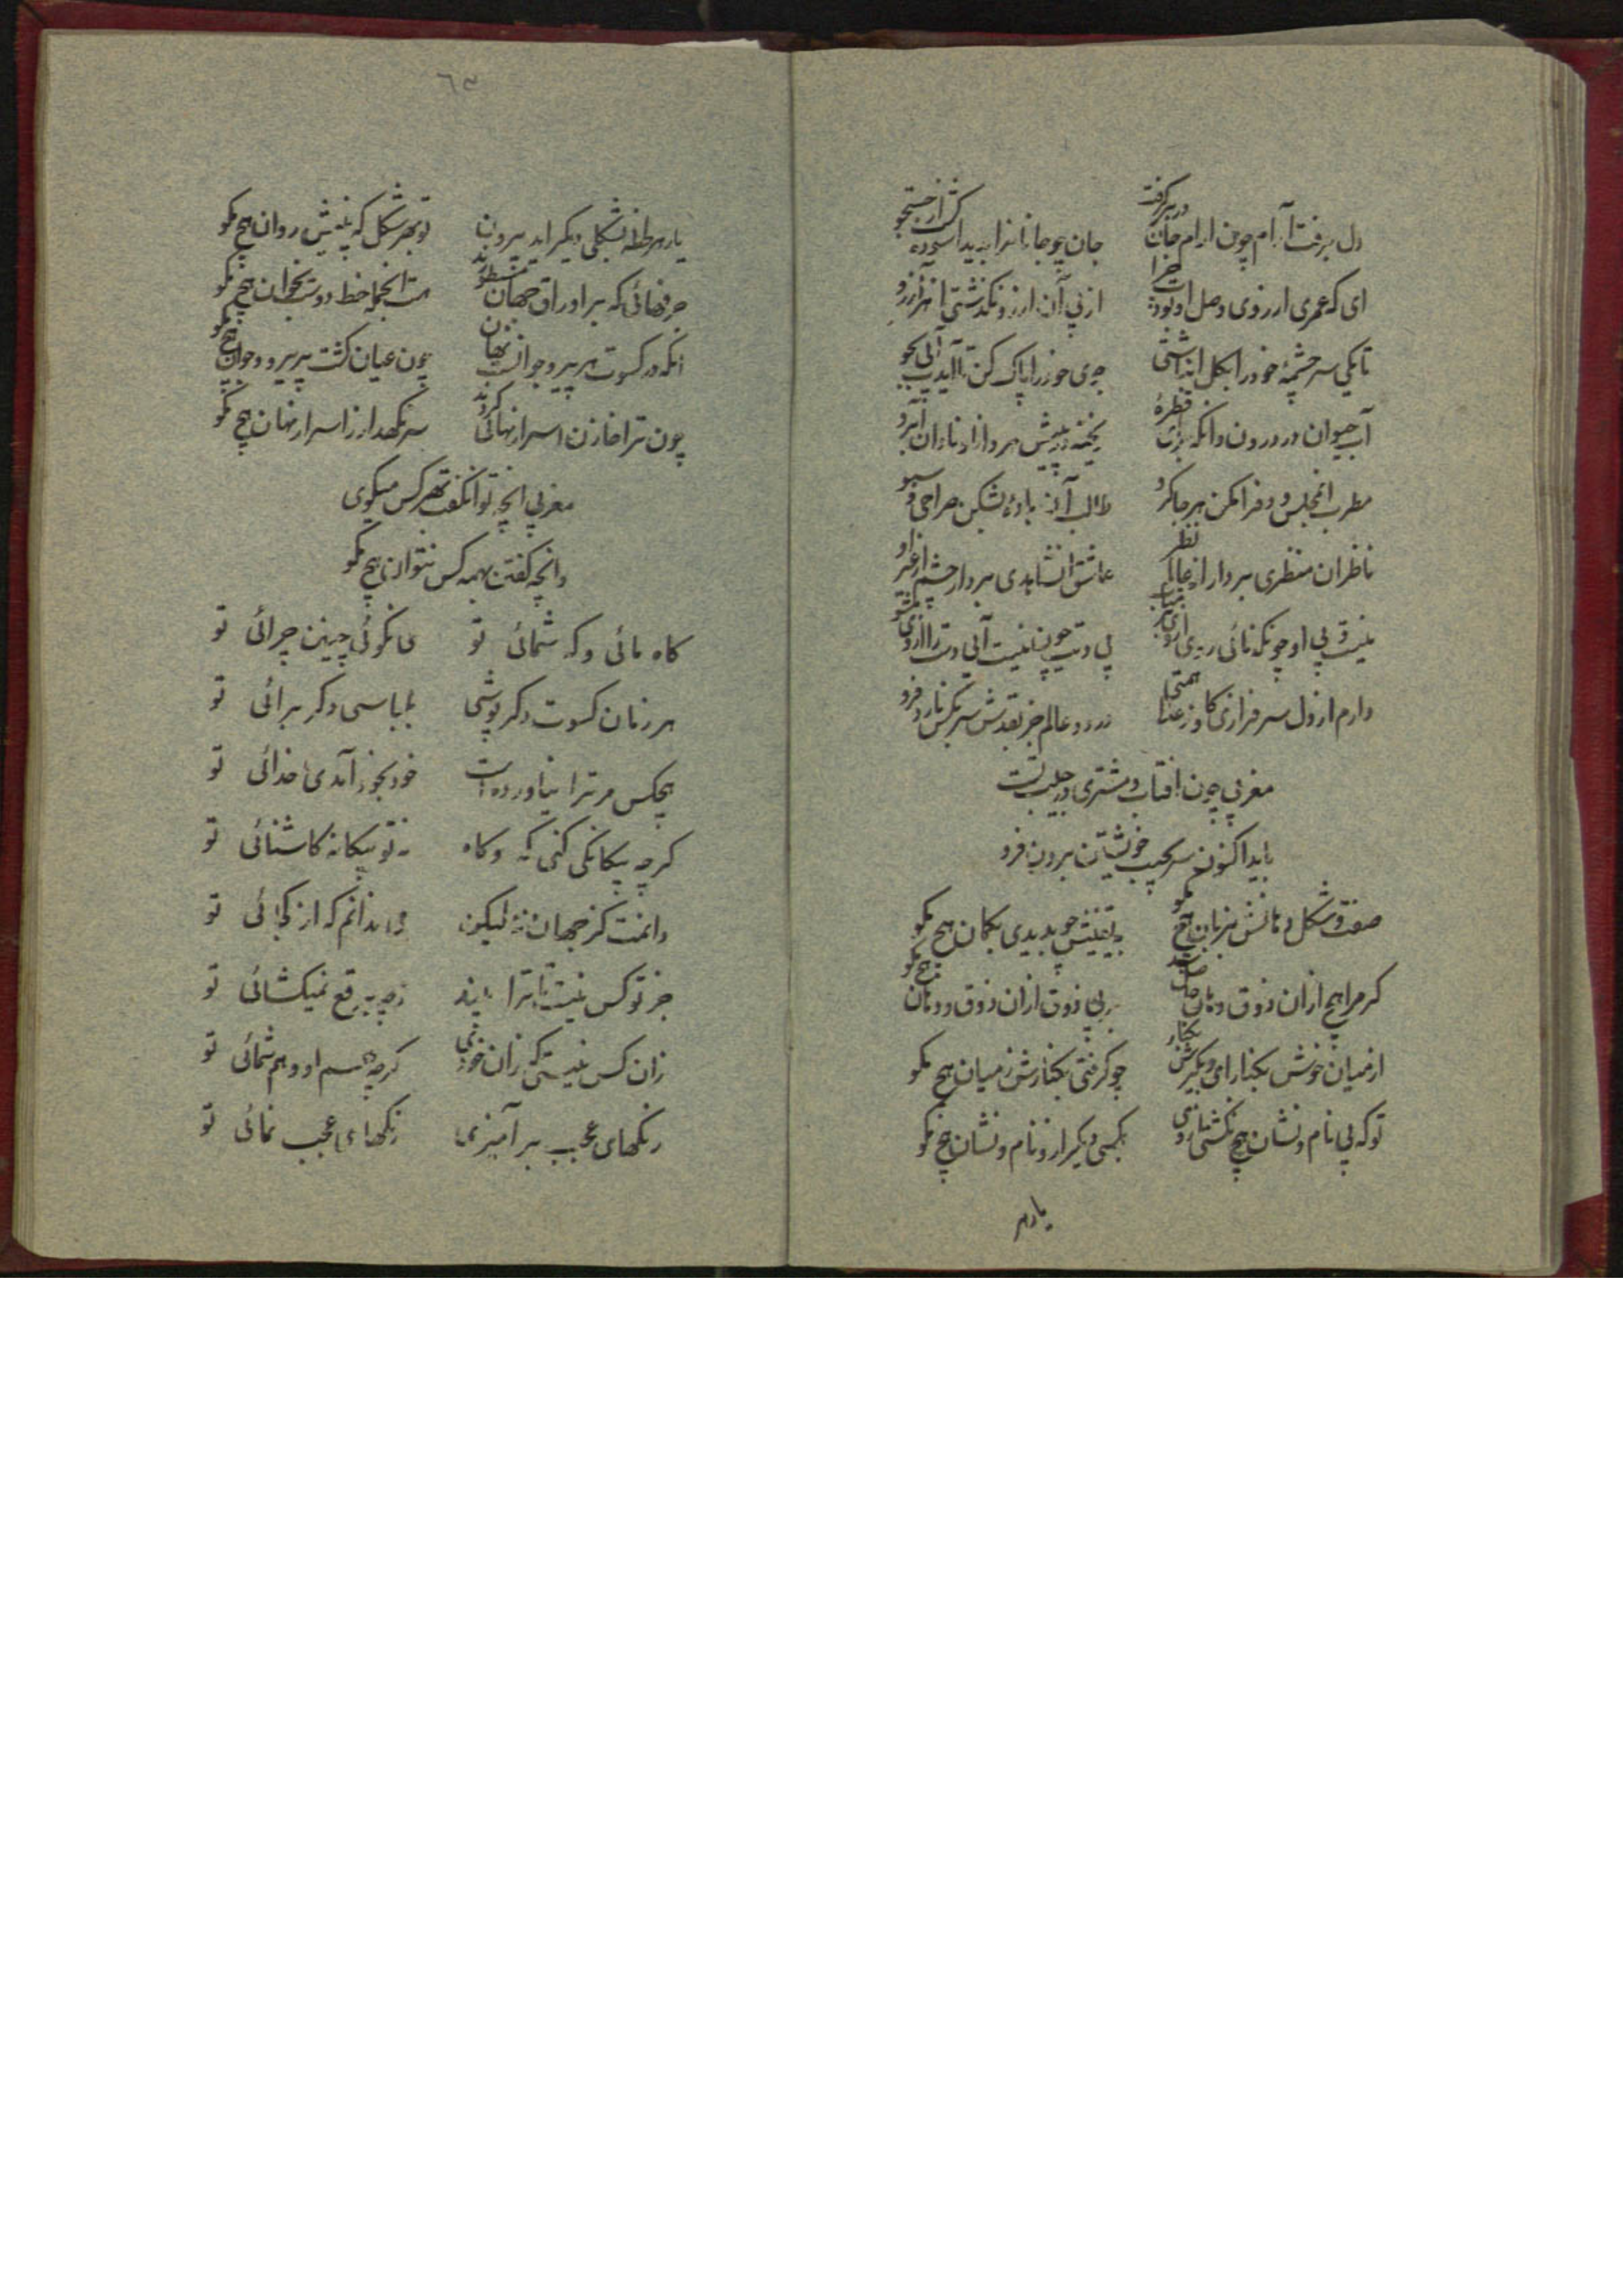 دل برفت آرام چون ارام جان در بر گرفت جان چو جانانرا بدید اسوده گشت از جستجو
ای که عمری ارزوی وصل او بودت چرا از پی آن ارزو نگذشتی از هر آرزو
تا بکی سرچشمهٔ خود را بکل انباشتی جوی خود را پاک کن تا آید آب آبی بجو
آب حیوان در درون وانکه برای قطرهٔ ریخته در پیش هر دانا و نادان آبرو
مطرب انمجلس دف را مکن هر جا گرو طالب آن باده بشکن صراحی و سبو
ناظران منظری بردار از عالم نظر عاشق انشاهدی بردار چشم از غیر او
نیست بی او چونکه تابی روی از وی بر متاب بی وی چون نیست آبی دست را از وی مشو
دارم از دل سرفرازی کاو ز عالی همتی در دو عالم جز بقدش سر بکس نارد فرو
مغربی چون افتاب و مشتری در جیب تست
باید اکنون سر بجیب خویشتن بردن فرو
صفت و شکل دهانش بزبان هیچ مگو بیقینش چو بدیدی بگمان هیچ مگو
گر مرا هیچ از ان ذوق دهان حاصل شد بر بی ذوق ازان ذوق و دهان هیچ مگو
از میان خوش بکنار ای و بگیرش بکنار چو گرفتی بکنارش ز میان هیچ مگو
تو که بی نام و نشان هیچ نگشتی از وی بکسی دیگر ازو نام و نشان هیچ مگو
یار هر
٦٣
یار هر لحظه بشکلی دیگر اید بیرون تو بهر شکل که بینیش روان هیچ مگو
حرفهائی که بر اوراق جهان مسطورند هست انجمله خط دوست بخوان هیچ مگو
انکه در کسوت هر پیر و جوانست نهان چون عیان گشت بر پیر و جوان هیچ مگو
چون ترا خازن اسرار نهانی کردند سر نگهدار ز اسرار نهان هیچ مگو
مغربی انچه توانگفت بهر کس میگوی
وانچه گفتن بهمه کس نتوان هیچ مگو
گاه مائی و گه شمائی تو می نگوئی چنین چرائی تو
هر زمان کسوت دگر پوشی بلباسی دگر برائی تو
هیچکس مر ترا نیاورده است خود بخود آمدی خدائی تو
گرچه بیگانگی کنی گه و گاه نه تو بیگانه کاشنائی تو
دانمت کز جهان نه لیکن می ندانم که از کجائی تو
جز تو کس نیست تا ترا بیند ز چه برقع نمیگشائی تو
زان کس نیستی که زان خودی گرچه هم او و هم شمائی تو
رنگهای عجب بر آمیزی رنگهای عجب نمائی تو